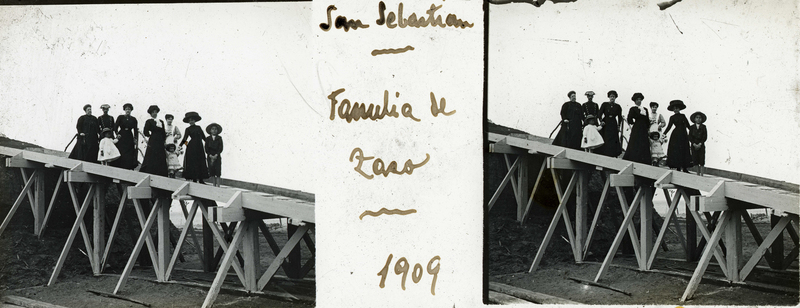 San Sebastian
Familia de
Zaro
1909